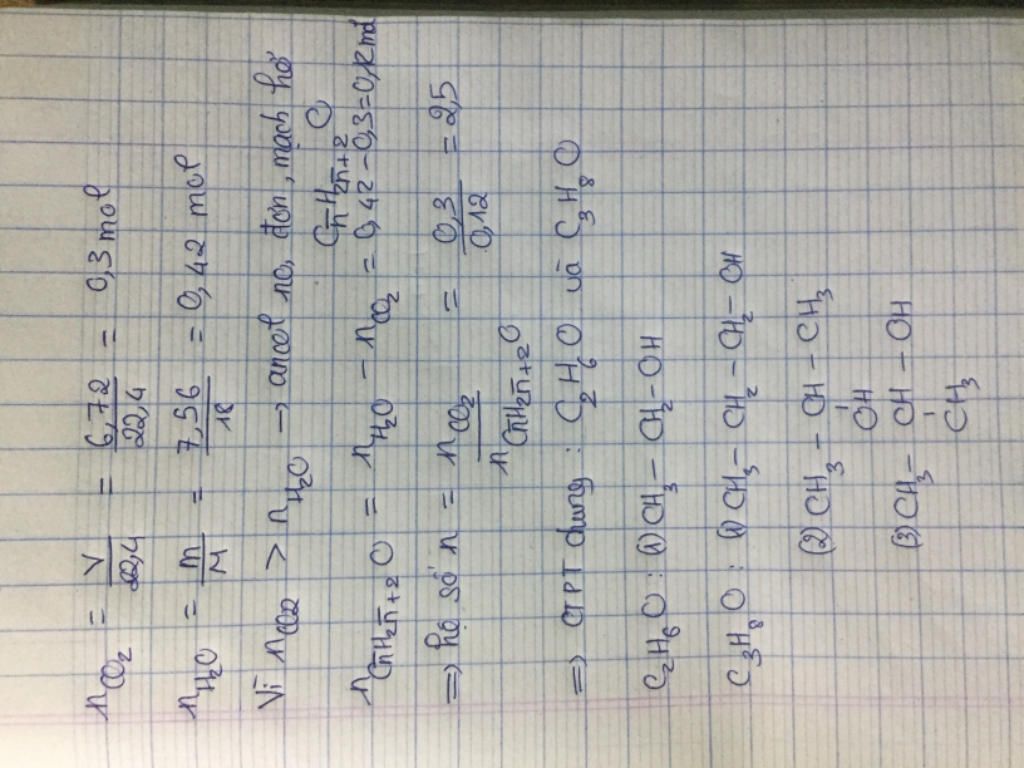 nCO₂ = V/22,4 = 6,72/22,4 = 0,3 mol
nH₂O = m/M = 7,56/18 = 0,42 mol
Vì nCO2 > nH₂O → ancol no, đơn, mạch hở
Cn̄H2n̄+2O
nCn̄H2n̄+2O = nH₂O − nCO₂ = 0,42 − 0,3 = 0,12 mol
⇒ hệ số n = nCO₂/nCn̄H2n̄+2O = 0,3/0,12 = 2,5
⇒ CTPT chung : C₂H₆O và C₃H₈O
C₂H₆O : (1) CH₃ − CH₂ − OH
C₃H₈O : (1) CH₃ − CH₂ − CH₂ − OH
(2) CH₃ − CH − CH₃
OH
(3) CH₃ − CH − OH
CH₃